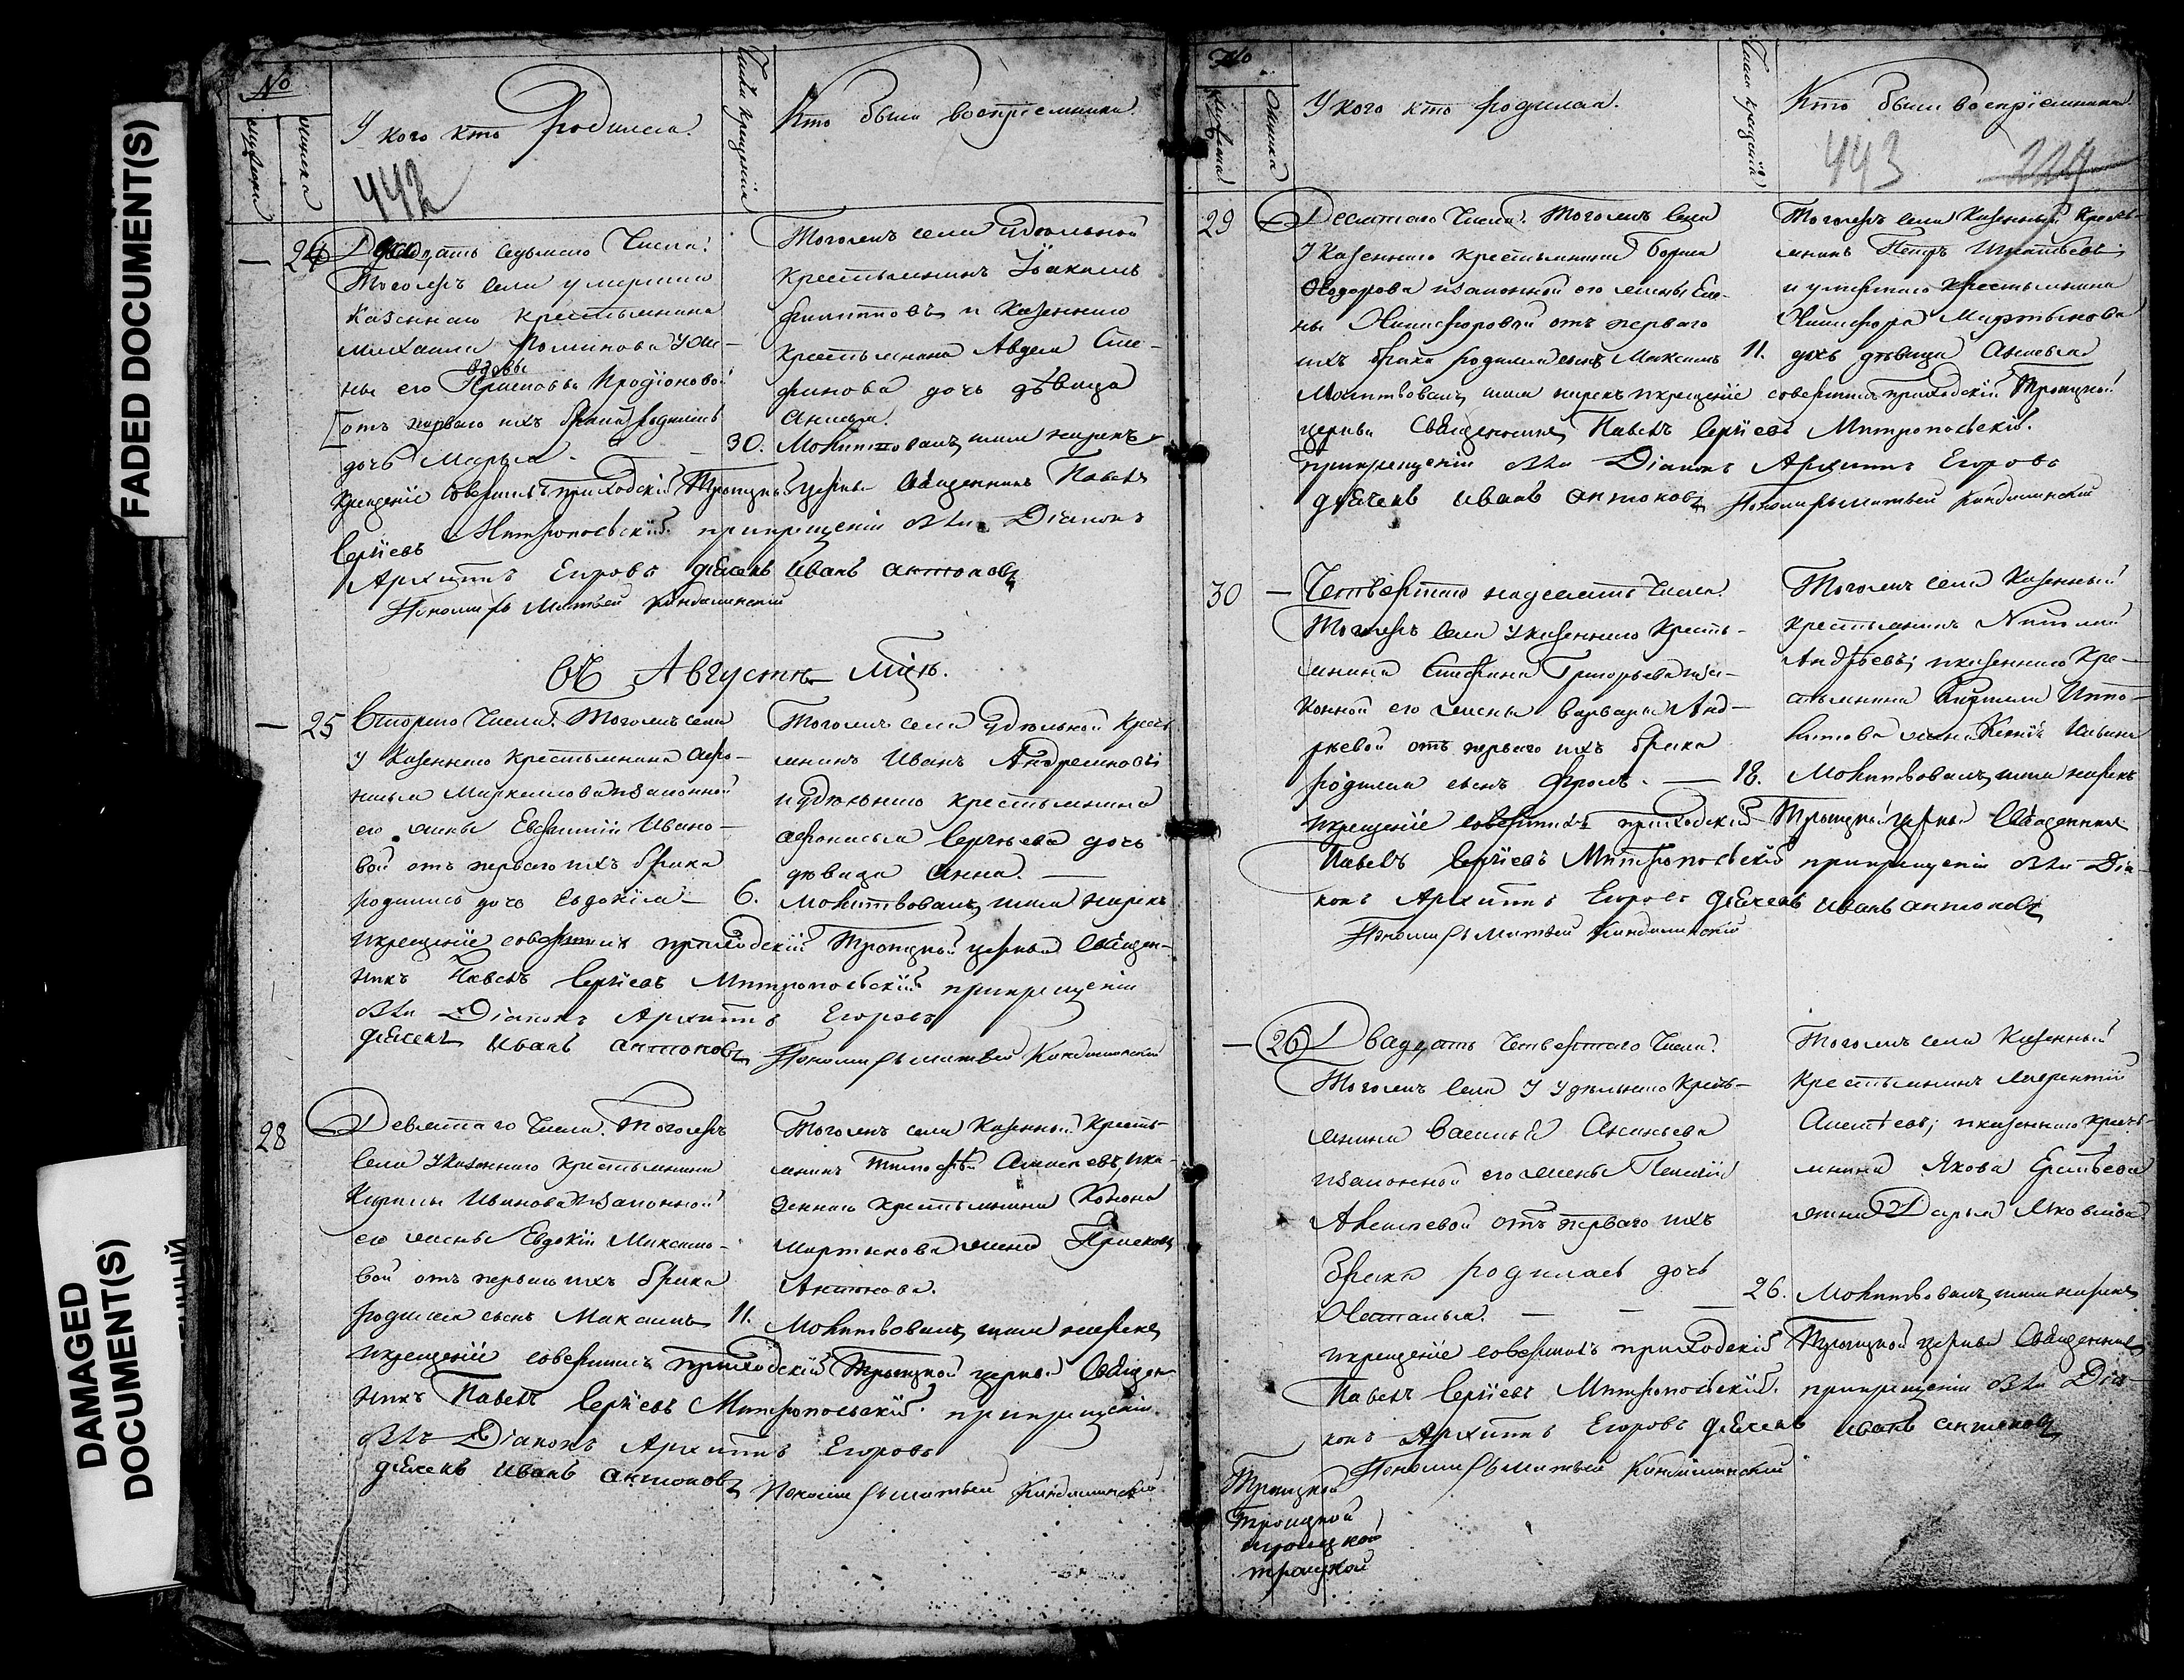 FADED DOCUMENT(S)
DAMAGED
DOCUMENT(S)
№
мужеска
женска
У кого кто родился.
Число крещенія
Кто были воспріемники.
442
— 24 Двадцать седьмого Числа.
Тогожъ села умершаго
Казеннаго крестьянина
Михаила
ны его вдовы Продіоновой
отъ перваго ихъ брака родилась
дочь Марья — 30.
Тогожъ села Удѣльной
крестьянинъ Іоакимъ
Филипповъ и Казеннаго
крестьянина Авдея Сте-
фанова дочь дѣвица
Анисья.
Молитвовалъ, имя нарекъ и
крещеніе совершилъ приходскій Троицкой церкви Священникъ Павелъ
Сергіевъ Митропольскій. при крещеніи были Діаконъ
Архиппъ Егоровъ дьячекъ Иванъ Антоновъ
Пономарь Матвей Кандалинский
Въ Августѣ мцѣ.
— 25 Второго Числа. Тогожъ села
У Казеннаго крестьянина Афо-
насья Маркелова и законной
его жены Евфиміи Ивано-
вой отъ перваго ихъ брака
родилась дочь Евдокіја — 6.
Тогожъ села Удѣльной Крест
янинъ Иванъ Андреяновъ
и удѣльнаго крестьянина
Афонасья Сергѣева дочь
дѣвица Анна. —
Молитвовалъ, имя нарекъ
и крещеніе совершилъ приходскій Троицкой церкви Священ-
никъ Павелъ Сергіевъ Митропольскій при крещеніи
были Діаконъ Архиппъ Егоровъ
дьячекъ Иванъ Антоновъ Пономарь Матвей Кандалинский
28 Девятаго Числа. Тогожъ
села У Казеннаго крестьянина
Кирилы Иванова и законной
его жены Евдокіи Максимо-
вой отъ перваго ихъ брака
родился сынъ Максимъ 11.
Тогожъ села Казенный Кресть-
янинъ Тимофѣй и ка-
зеннаго крестьянина Конона
Мартынова жена Прасковья
Антонова.
Молитвовалъ, имя нарекъ
и крещеніе совершилъ приходскій Троицкой церкви Священ-
никъ Павелъ Сергіевъ Митропольскій. при крещеніи
были Діаконъ Архиппъ Егоровъ
дьячекъ Иванъ Антоновъ Пономарь Матвей Кандалинский
№
мужеска
женска
У кого кто родился.
Число крещенія
Кто были воспріемники.
443
29 — Десятаго Числа. Тогожъ села
У Казеннаго крестьянина Бориса
Ѳеодорова и законной его жены Еле-
ны Никифоровой отъ перваго
ихъ брака родился сынъ Максимъ 11.
Тогожъ села Казенный Кресть-
янинъ Петръ Игнатьевъ
и умершаго крестьянина
Никифора Мартынова
дочь дѣвица Анисья
Молитвовалъ, имя нарекъ и крещеніе совершилъ приходскій Троицкой
церкви Священникъ Павелъ Сергіевъ Митропольскій.
при крещеніи были Діаконъ Архиппъ Егоровъ
дьячекъ Иванъ Антоновъ Пономарь Матвей Кандалинский
30 — Четвертаго надесять Числа.
Тогожъ села У казеннаго Кресть-
янина Стефана Григорьева и за-
конной его жены Варвары Анд-
реевой отъ перваго ихъ брака
родился сынъ Фролъ. — 18.
Тогожъ села Казенный
крестьянинъ Николай
Андреевъ; и казеннаго кре-
стьянина Кирилы Иппо-
литова жена Ксенія Ивана
Молитвовалъ, имя нарекъ
и крещеніе совершилъ приходскій Троицкой церкви Священникъ
Павелъ Сергіевъ Митропольскій при крещеніи были Діа-
конъ Архиппъ Егоровъ дьячекъ Иванъ Антоновъ
Пономарь Матвей Кандалинский
— 26 Двадцать Четвертаго Числа.
Тогожъ села У Удѣльнаго Кресть-
янина Василья Ананьева
и законной его жены Пелагіи
Алексѣевой отъ перваго ихъ
брака родилась дочь
Наталья. — — — 26.
Тогожъ села Казенный
Крестьянинъ Лаврентій
Алексѣевъ; и казеннаго кресть-
янина Якова
жена Дарья Яковлева
Молитвовалъ, имя нарекъ
и крещеніе совершилъ приходскій Троицкой церкви Священникъ
Павелъ Сергіевъ Митропольскій. при крещеніи были Діа-
конъ Архиппъ Егоровъ дьячекъ Иванъ Антоновъ
Пономарь Матвей Кандалинский
Троицкой
Троицкой
троицкой
троицкой